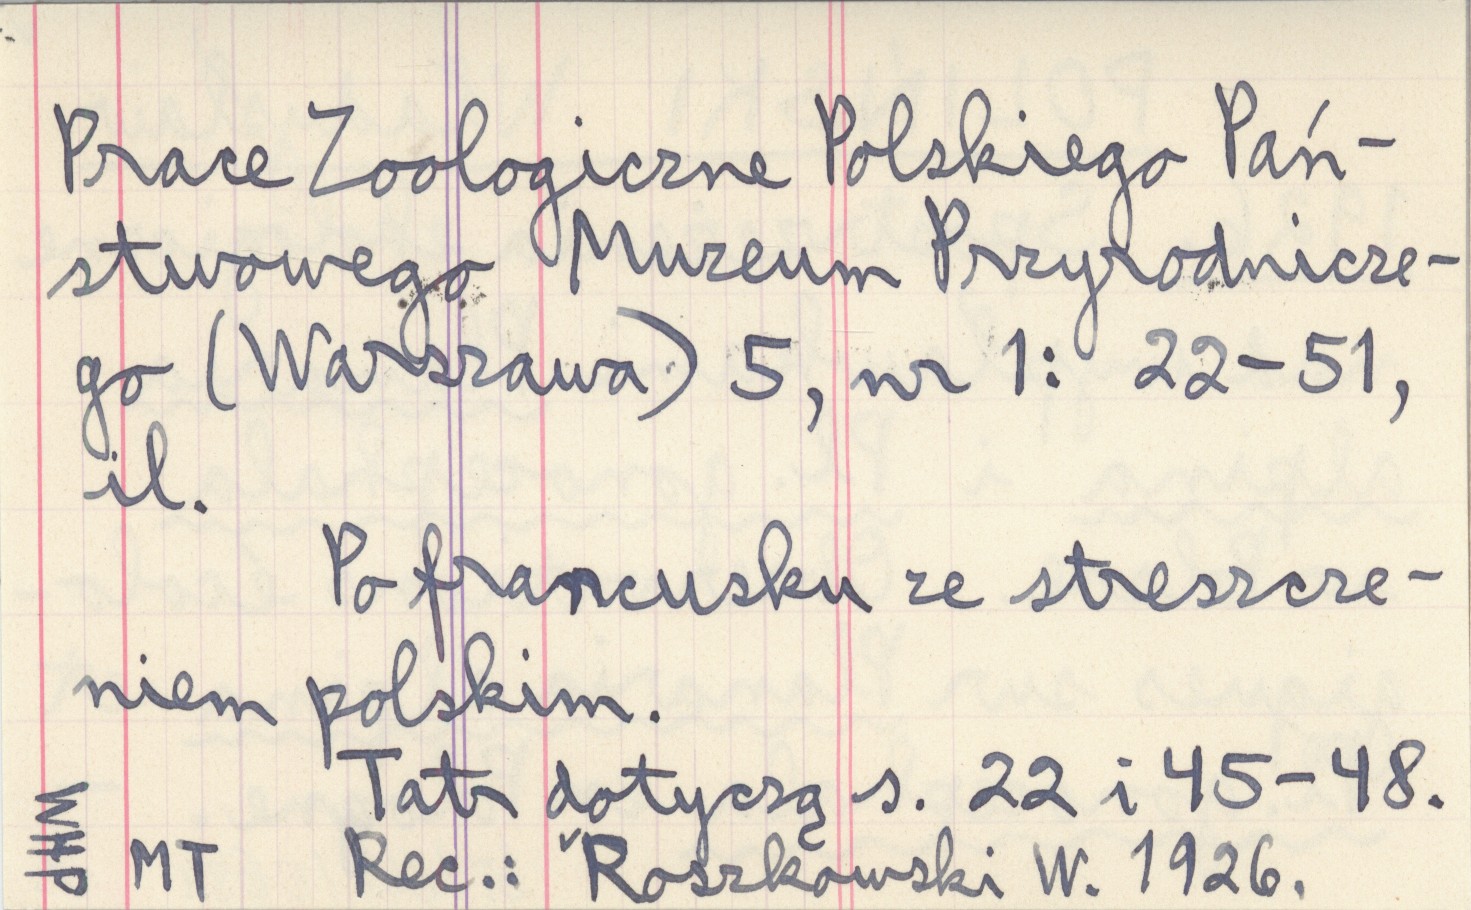 Prace Zoologiczne Polskiego Pań-
stwowego Muzeum Przyrodnicze-
go (Warszawa) 5, nr 1: 22-51,
il.
Po francusku ze streszcze-
niem polskim.
Tatr dotyczą s. 22 i 45-48.
WHP MT Rec.: Roszkowski W. 1926.